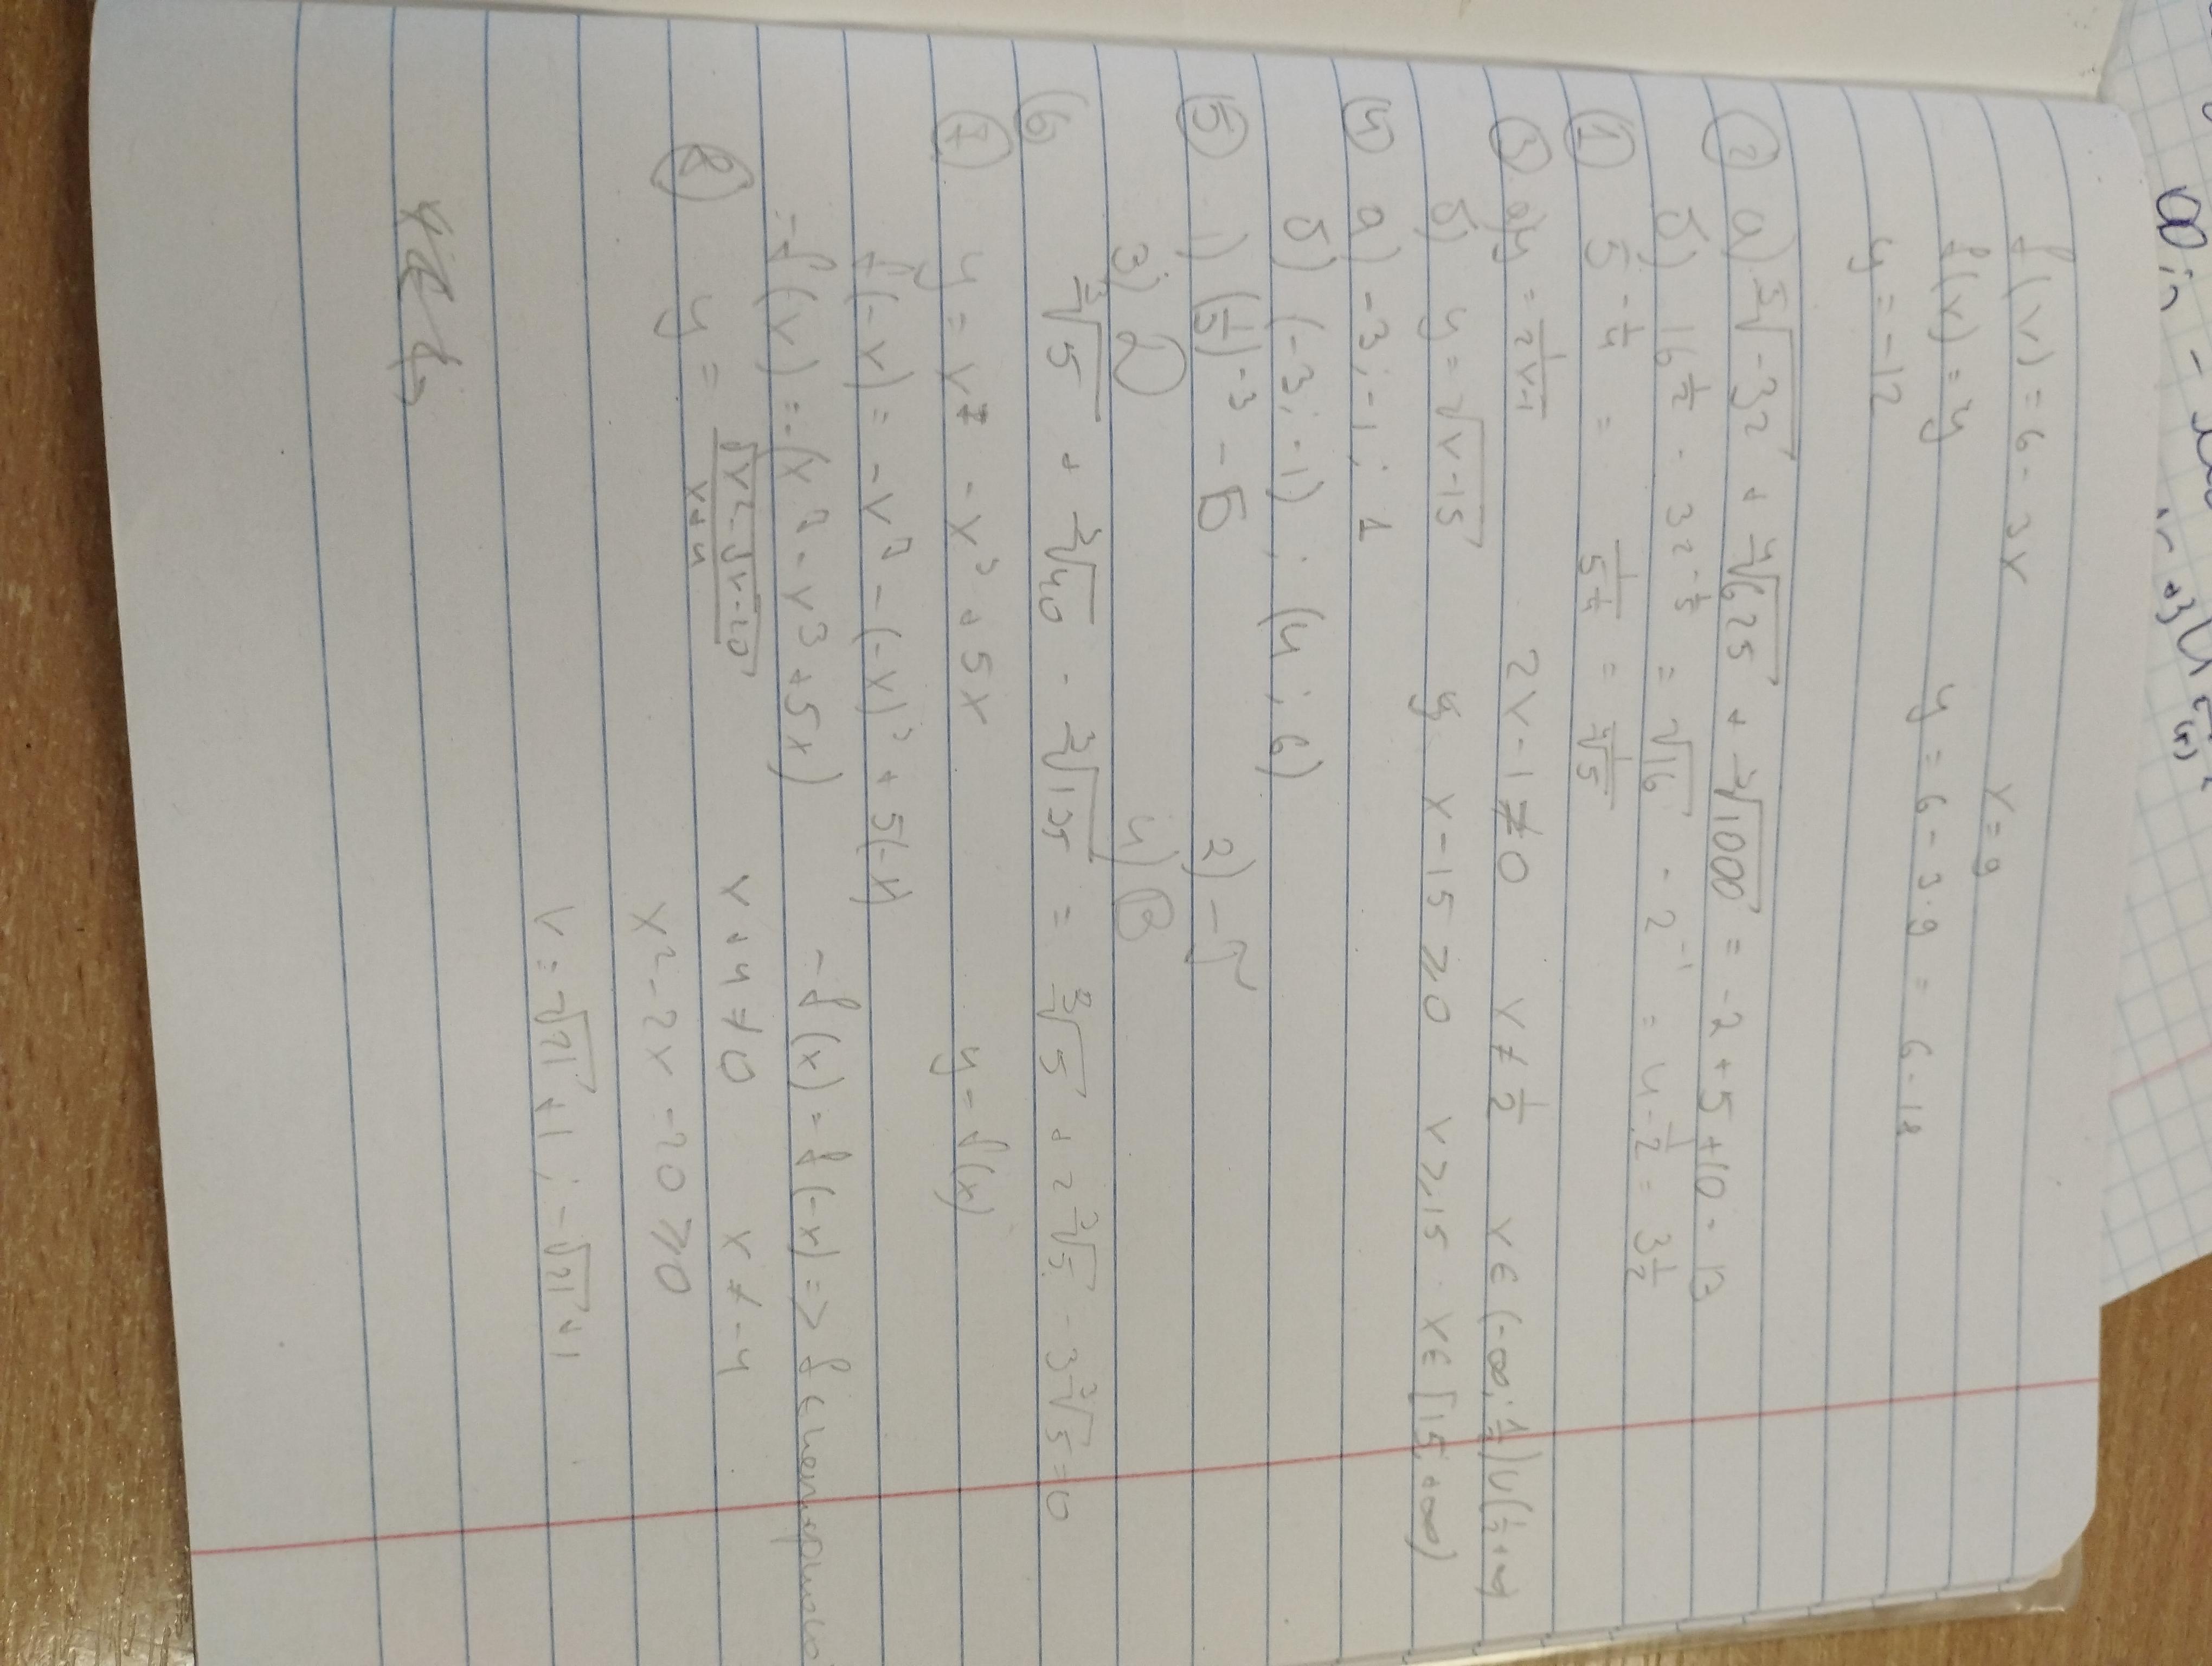 f(x) = 6 - 3x x = 9
f(x) = y y = 6 - 3·9 = 6 - 18
y = -12
② а) ⁵√-32 + ⁴√625 + ³√1000 = -2 + 5 + 10 = 13
б) 16^(1/2) - 32^(-1/5) = √16 - 2⁻¹ = 4 - 1/2 = 3 1/2
① 5^(-1/4) = 1/5^(1/4) = 1/⁴√5
③ а) y = 1/(2x-1) 2x - 1 ≠ 0 x ≠ 1/2 x ∈ (-∞; 1/2) ∪ (1/2; +∞)
б) y = √x-15 x - 15 ≥ 0 x ≥ 15 x ∈ [15; +∞)
④ а) -3; -1; 1
б) (-3; -1); (4; 6)
⑤ 1) (1/5)^-3 - Б 2) -
3) 2) 4) В
⑥ ³√5 + ³√40 - ³√135 = ³√5 + 2³√5 - 3³√5 = 0
⑦ y = x⁷ - x³ + 5x y = f(x)
f(-x) = -x⁷ - (-x)³ + 5(-x)
-f(x) = -(x⁷ - x³ + 5x) -f(x) = f(-x) => f
⑧ y = √x²-2x-20 / x+4 x + 4 ≠ 0 x ≠ -4
x² - 2x - 20 ≥ 0
x = √21 + 1; -√21 + 1